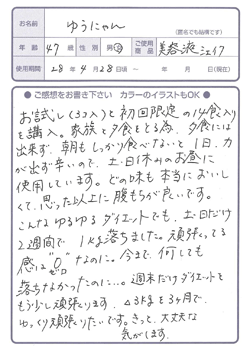 お名前 ゆうにゃん
(匿名でも結構です)
年齢 47才 性別 男・女 ご使用商品 美容液シェイク
使用期間 28年4月28日頃 〜 年 月 日 (現在)
●ご感想をお書き下さい カラーのイラストもOK●
お試し(3コ入)と初回限定の14食入り
を購入。家族と夕食をとる為、夕食には
出来ず、朝もしっかり食べないと1日、力
が出ず辛いので、土日休みのお昼に
使用しています。どの味も本当においし
くて、思った以上に腹もちが良いです。
こんなゆるゆるダイエットでも、土・日だけ
2週間で1kg落ちました。頑張ってる
感は"0"なのに。今まで、何しても
落ちなかったのに…。週末だけダイエットを
もう少し頑張ります。△3kgを3ヶ月で、
ゆっくり頑張りたいです。きっと、大丈夫な
気がします。